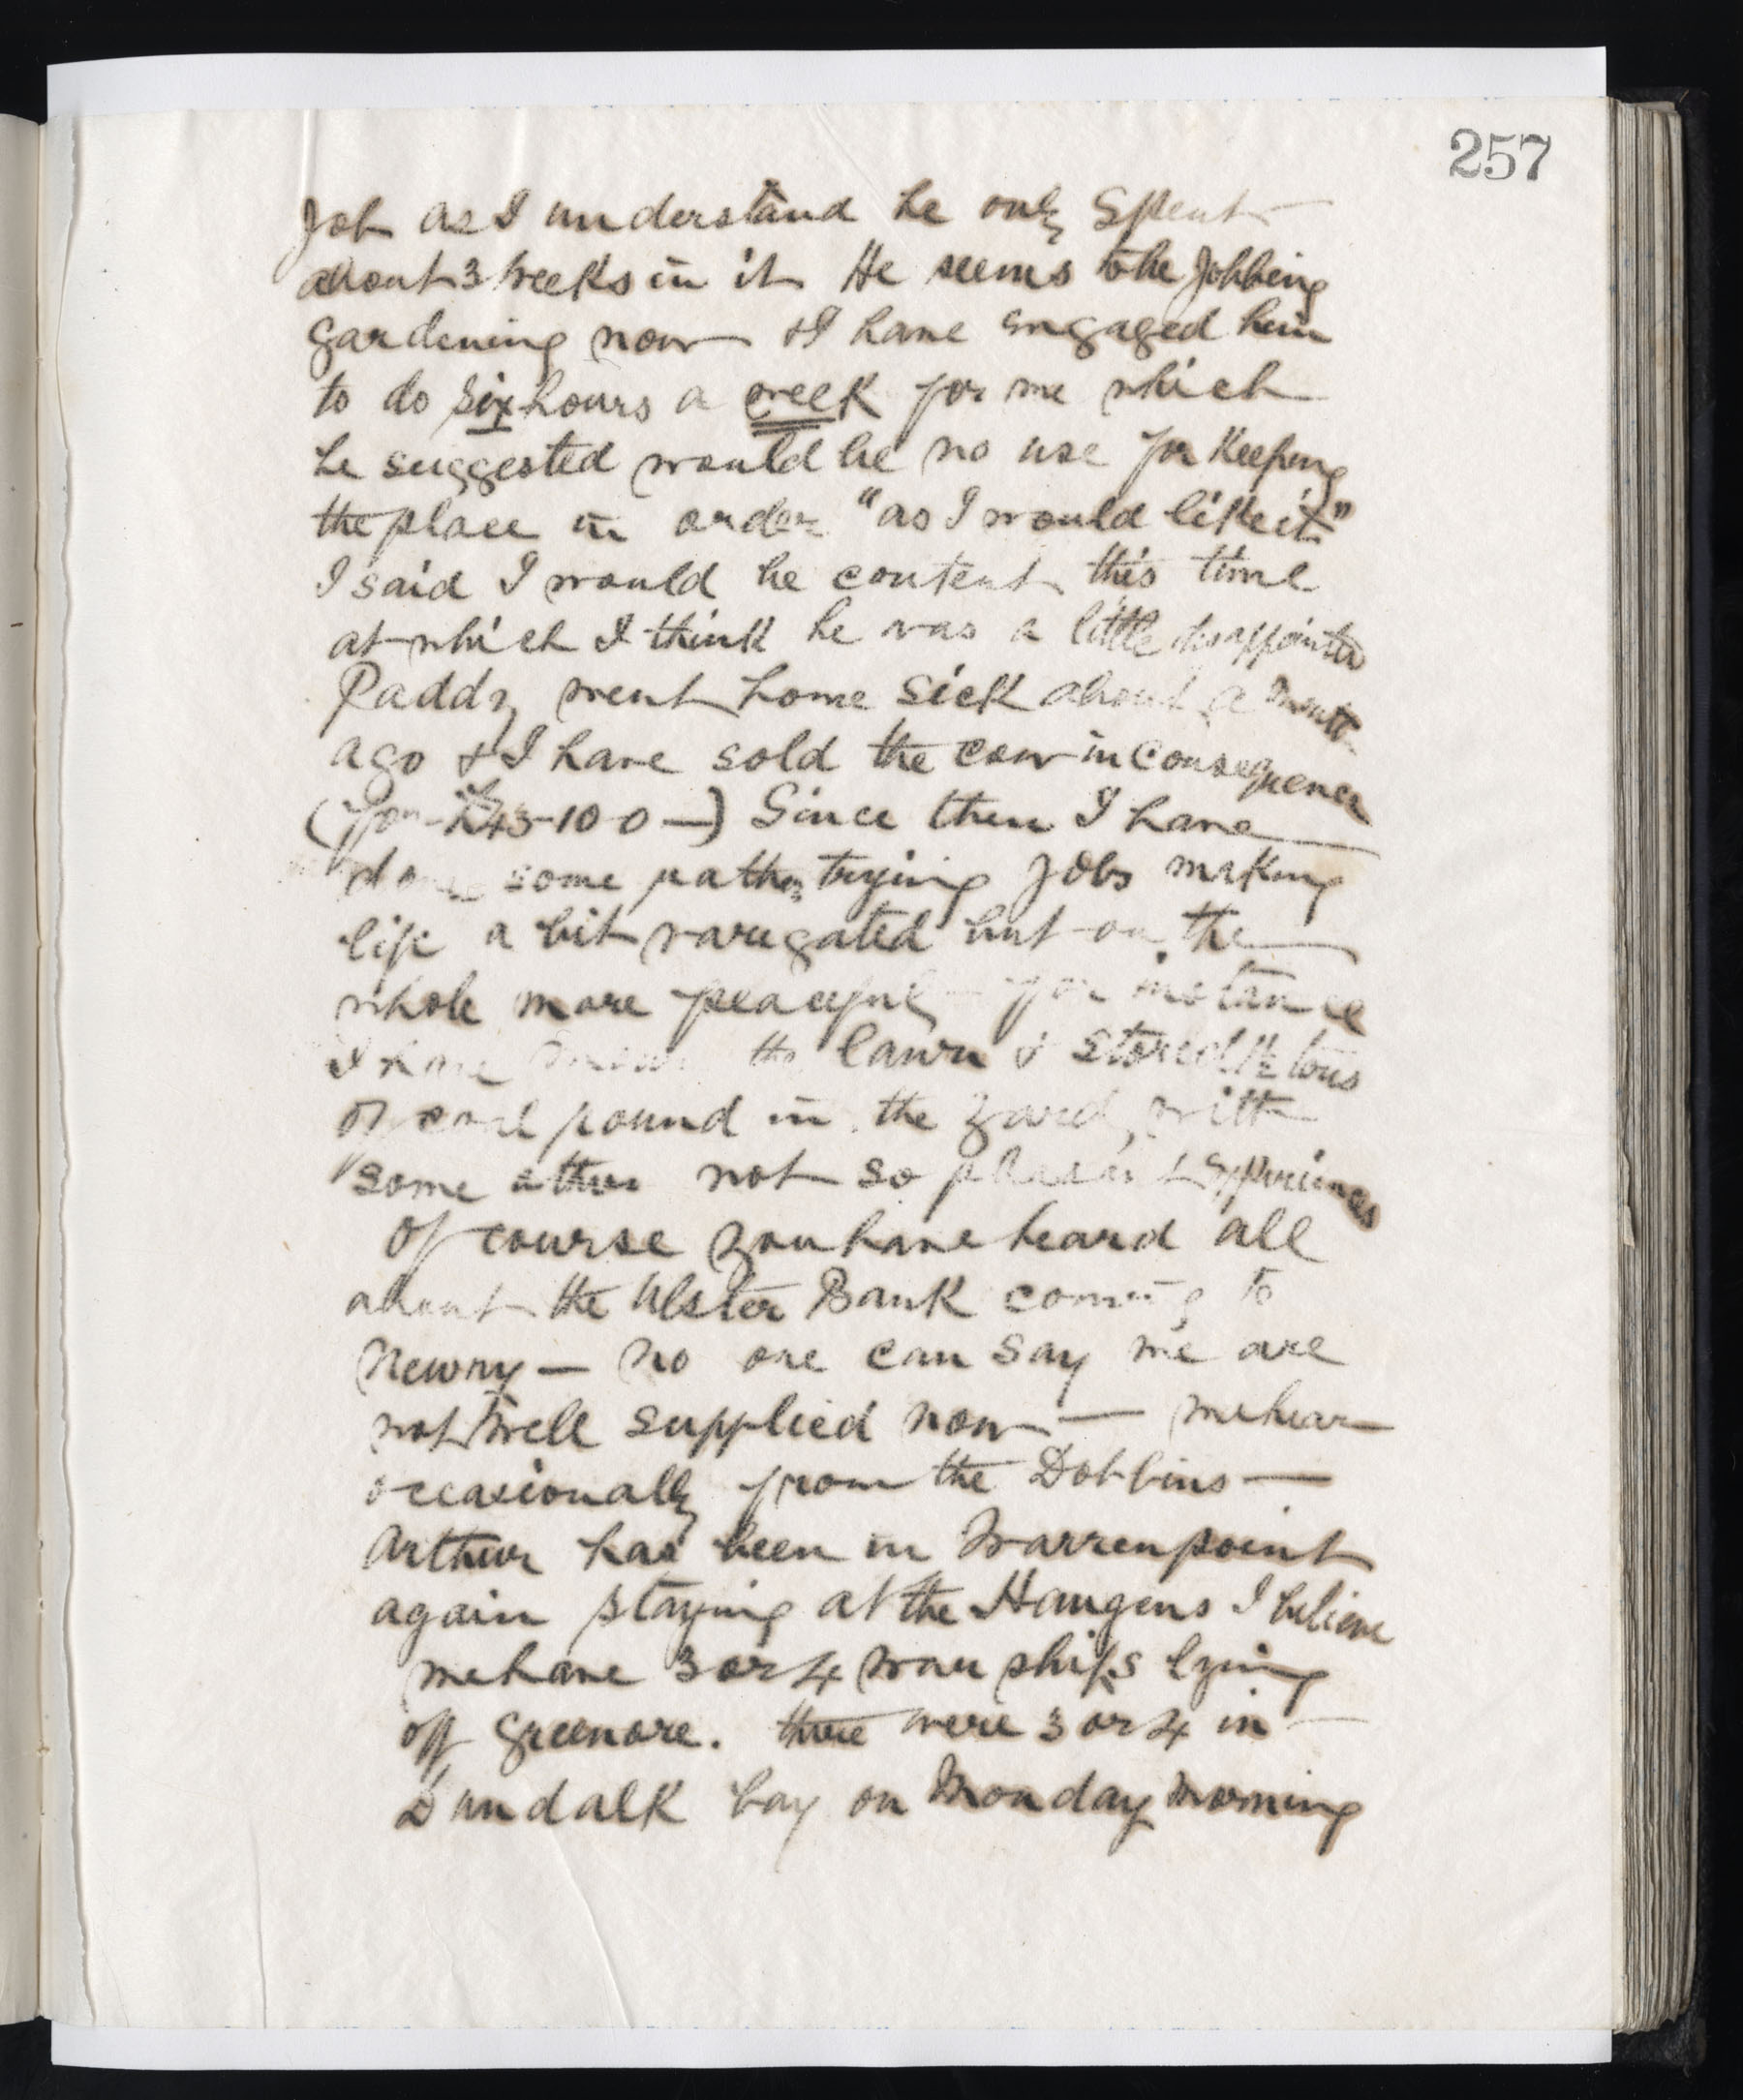 257
Job as I understand he only Spent
about 3 weeks in it He seems to be Jobbing
gardening now & I have engaged him
to do six hours a week for me which
he suggested would be no use for Keeping
the place in order "as I would like it"
I said I would be content this time
at which I think he was a little disappointed
Paddy went home sick about a month
ago & I have sold the cow in Consequence
(for £43-10-0-) Since then I have
done some rather trying Jobs making
life a bit varigated but on the
whole more peaceful - for instance
I have mown the lawn & stored 1½ tons
of coal found in the yard, with
some other not so pleasant experiences
Of course you have heard all
about the Ulster Bank coming to
Newry — no one can say we are
not well supplied now — we hear
occasionally from the Dobbins —
Arthur has been in Warrenpoint
again staying at the Haugens I believe
we have 3 or 4 war ships lying
off Greenore. there were 3 or 4 in
Dundalk bay on Monday morning